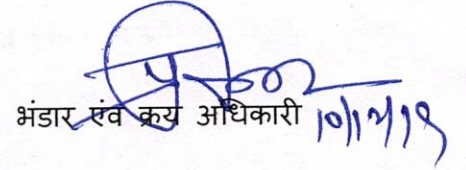 भंडार एंव क्रय अधिकारी 10/12/19